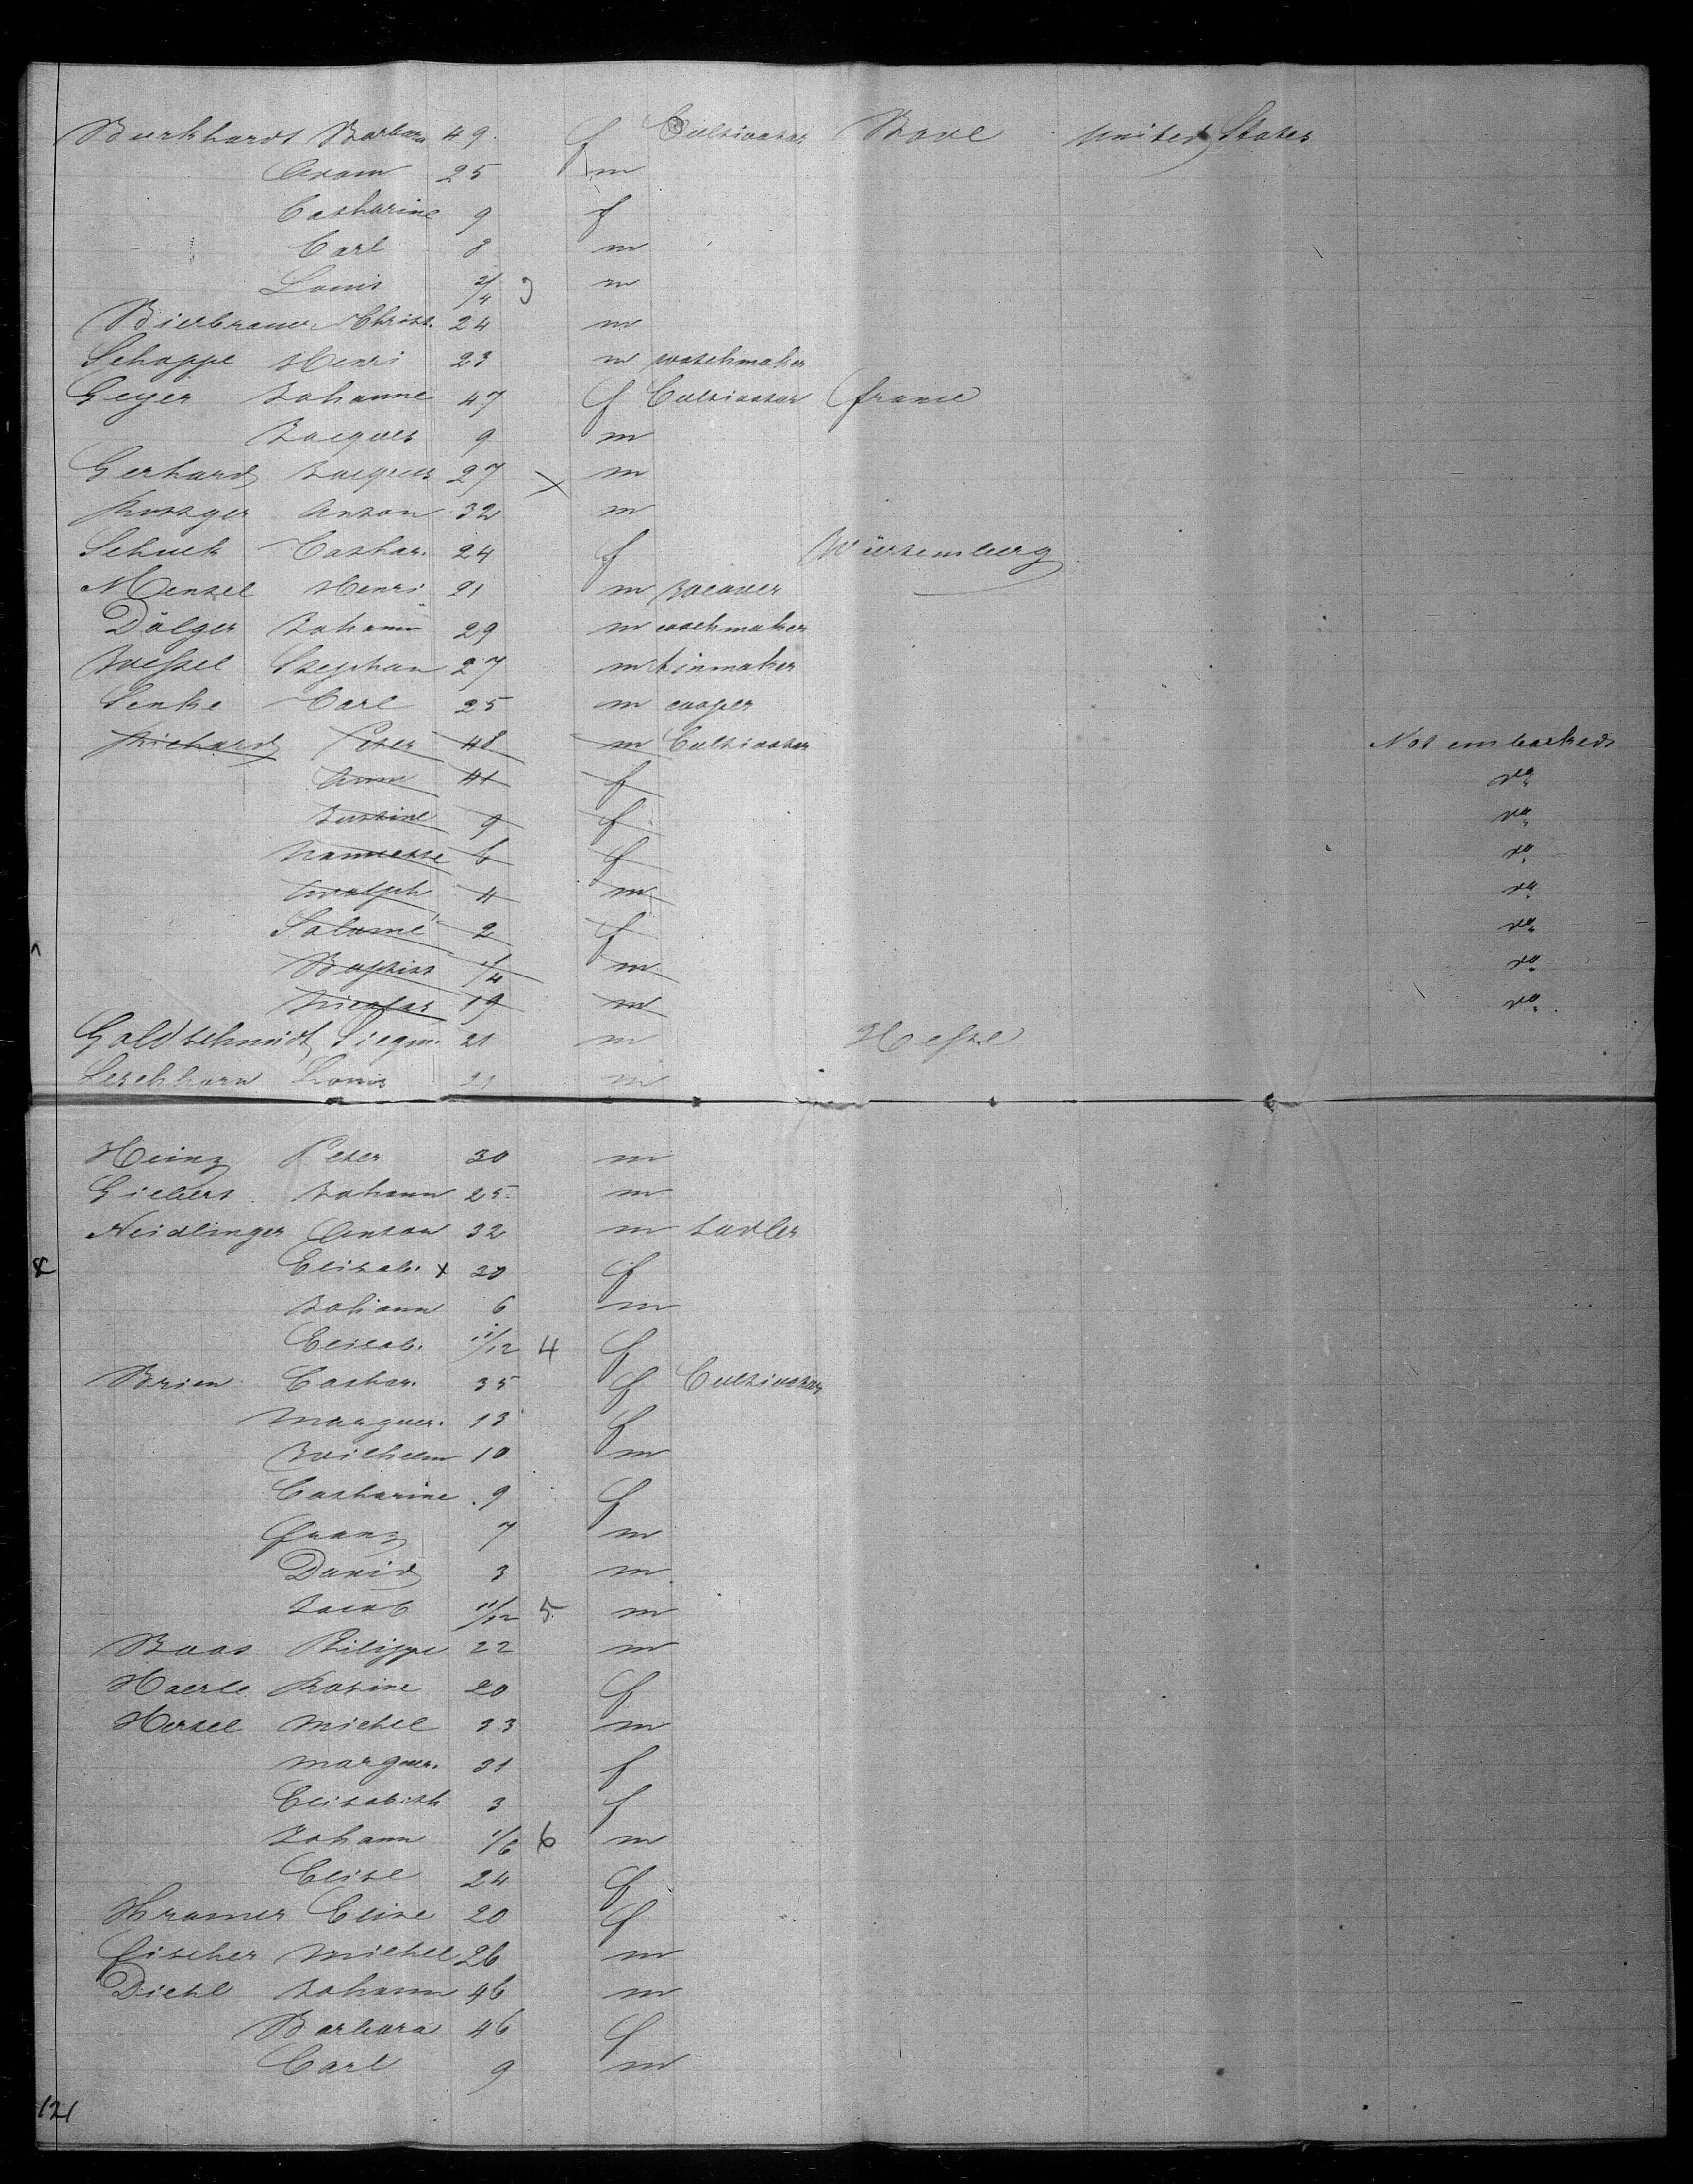 Burkhardt Barbara 49 f Cultivator Bade United States
Adam 25 m
Catharine 9 f
Carl 8 m
Louis 2/4 3 m
Bierbrauer Christ. 24 m
Schoppe Henri 23 m watchmaker
Geyer Johanne 47 f Cultivator france
Jacques 9 m
Gerhard Jacques 27 x m
Anton 32 m
Schuck Cathar. 24 f Würtemberg
Menzel Henri 21 m weaver
Dölger Johann 29 m
Wessel Stephan 27 m tinmaker
Senke Carl 25 m cooper
Richard Peter 48 m Cultivator Not embarked
Anne 41 f do
Justine 9 f do
Nannette 6 f do
Adolph 4 m do
Salomé 2 f do
Baptist 1/4 m do
Nicolas 19 m do
Goldschmidt Siegm. 21 m Hesse
Leschhorn Louis 21 m
Heinz Peter 30 m
Johann 25 m
Neidlinger Anton 32 m sadler
Elisab. x 20 f
Johann 6 m
Elisab. 11/12 4 f
Brien Cathar. 35 f Cultivator
Marguer. 13 f
Wilhelm 10 m
Catharine 9 f
franz 7 m
David 3 m
Jacob 11/12 5 m
Baas Philippe 22 m
Haerle Rosine 20 f
Hertel Michel 33 m
Marguer. 31 f
Elisabeth 3 f
Johann 1/6 6 m
Elise 24 f
Kramer Elise 20 f
fischer Michel 26 m
Diehl Johann 46 m
Barbara 46 f
Carl 9 m
121